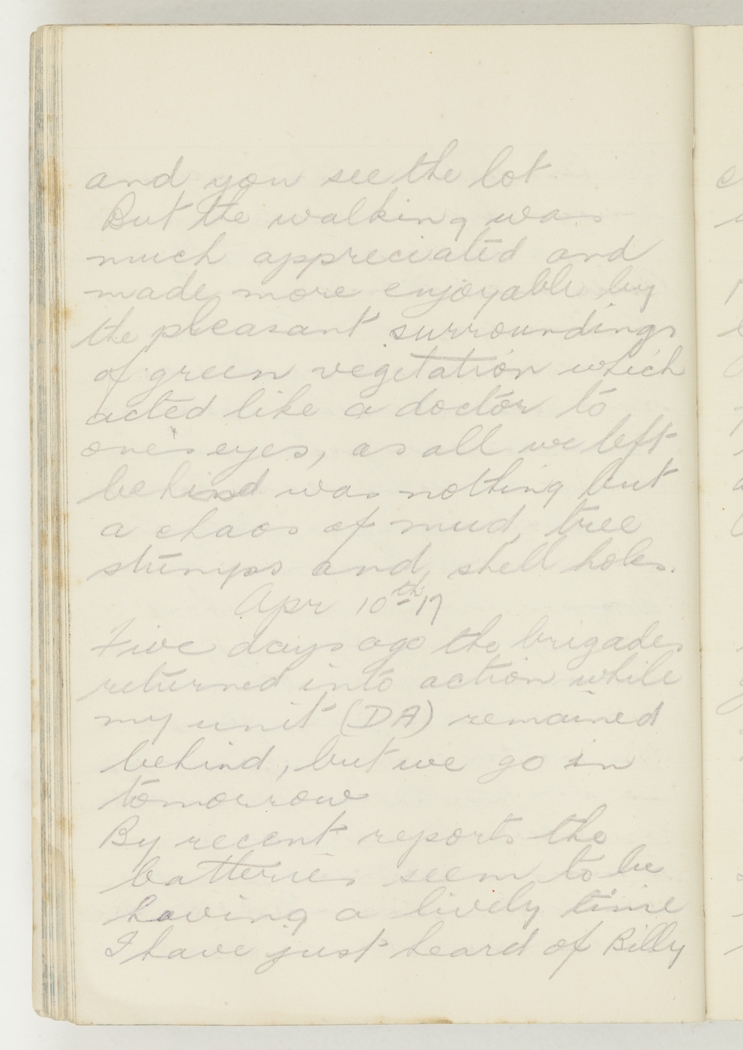 and you see the lot
But the walking was
much appreciated and
made more enjoyable by
the pleasant surroundings
of green vegetation which
acted like a doctor to
one's eyes, as all we left
behind was nothing but
a chaos of mud, tree
stumps and shell holes.
Apr 10th 17
Five days ago the brigades
returned into action while
my unit (DA) remained
behind, but we go in
tomorrow
By recent reports the
batteries seem to be
having a lively time
I have just heard of Billy